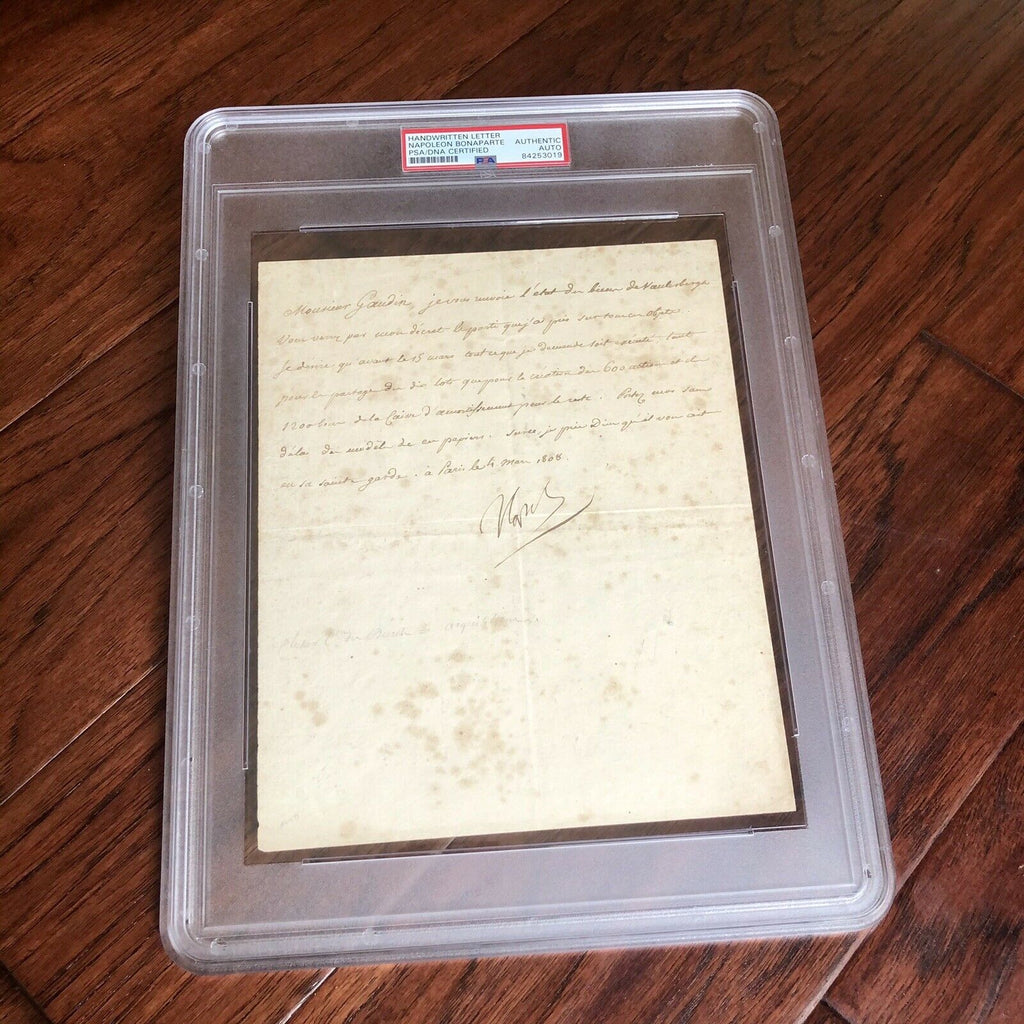 HANDWRITTEN LETTER
NAPOLEON BONAPARTE AUTHENTIC
PSA/DNA CERTIFIED AUTO
PSA 84253019
Monsieur Gaudin, je vous envoie l'état des biens de Vanlerberghe
vous verrez par mon décret le parti que j'ai pris sur tous ces objets.
je désire qu'avant le 15 mars tout ce que je demande soit exécuté, tant
pour le partage des dix lots que pour la création des 600 actions et des
1200 de la Caisse d'amortissement pour le reste. Portez moi sans
délai de ces papiers. Surce, je prie Dieu qu'il vous ait
en sa sainte garde. à Paris le 4 Mars 1808.
Nap